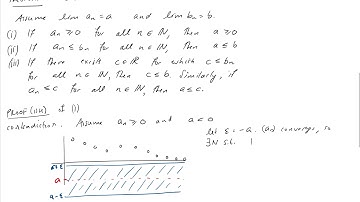 Assume lim an = a and lim bn = b.
(i) If an ≥ 0 for all n ∈ IN, then a ≥ 0
(ii) If an ≤ bn for all n ∈ IN, then a ≤ b
(iii) If there exists c ∈ IR for which c ≤ bn
for all n ∈ IN, then c ≤ b. Similarly, if
an ≤ c for all n ∈ IN, then a ≤ c.
PROOF of (i)
contradiction. Assume an ≥ 0 and a < 0
let ε = -a. (an) converges, so
∃N s.t.
a+ε
a
a-ε